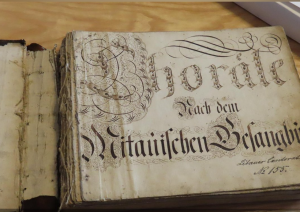 Chorale
Nach dem
Mitauischen Gesangb
№ 155.